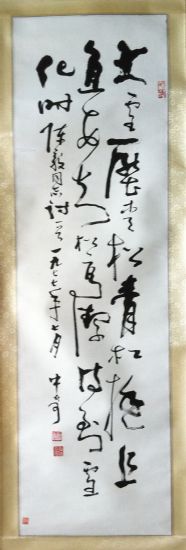 大雪壓青松青松挺且
直要知松高潔待到雪
化时 陈毅同志诗一首 一九七七年七月